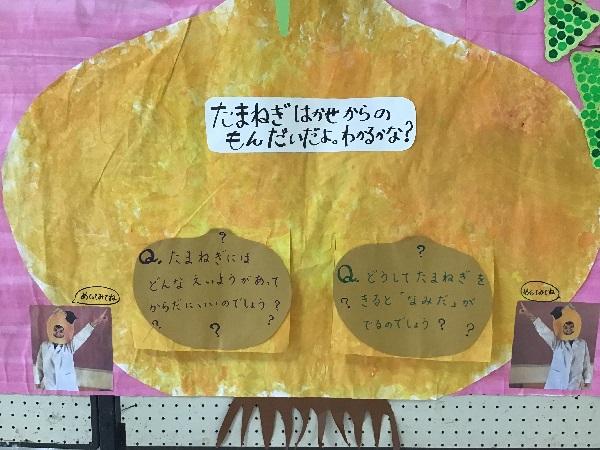 たまねぎ はかせからの
もんだいだよ。わかるかな?
?
Q. たまねぎには
どんな えいようがあって
からだに、いいのでしょう?
?
?
?
?
Q. どうしてたまねぎを
? きると「なみだ」が
でるのでしょう? ?
めくってみてね
めくってみてね